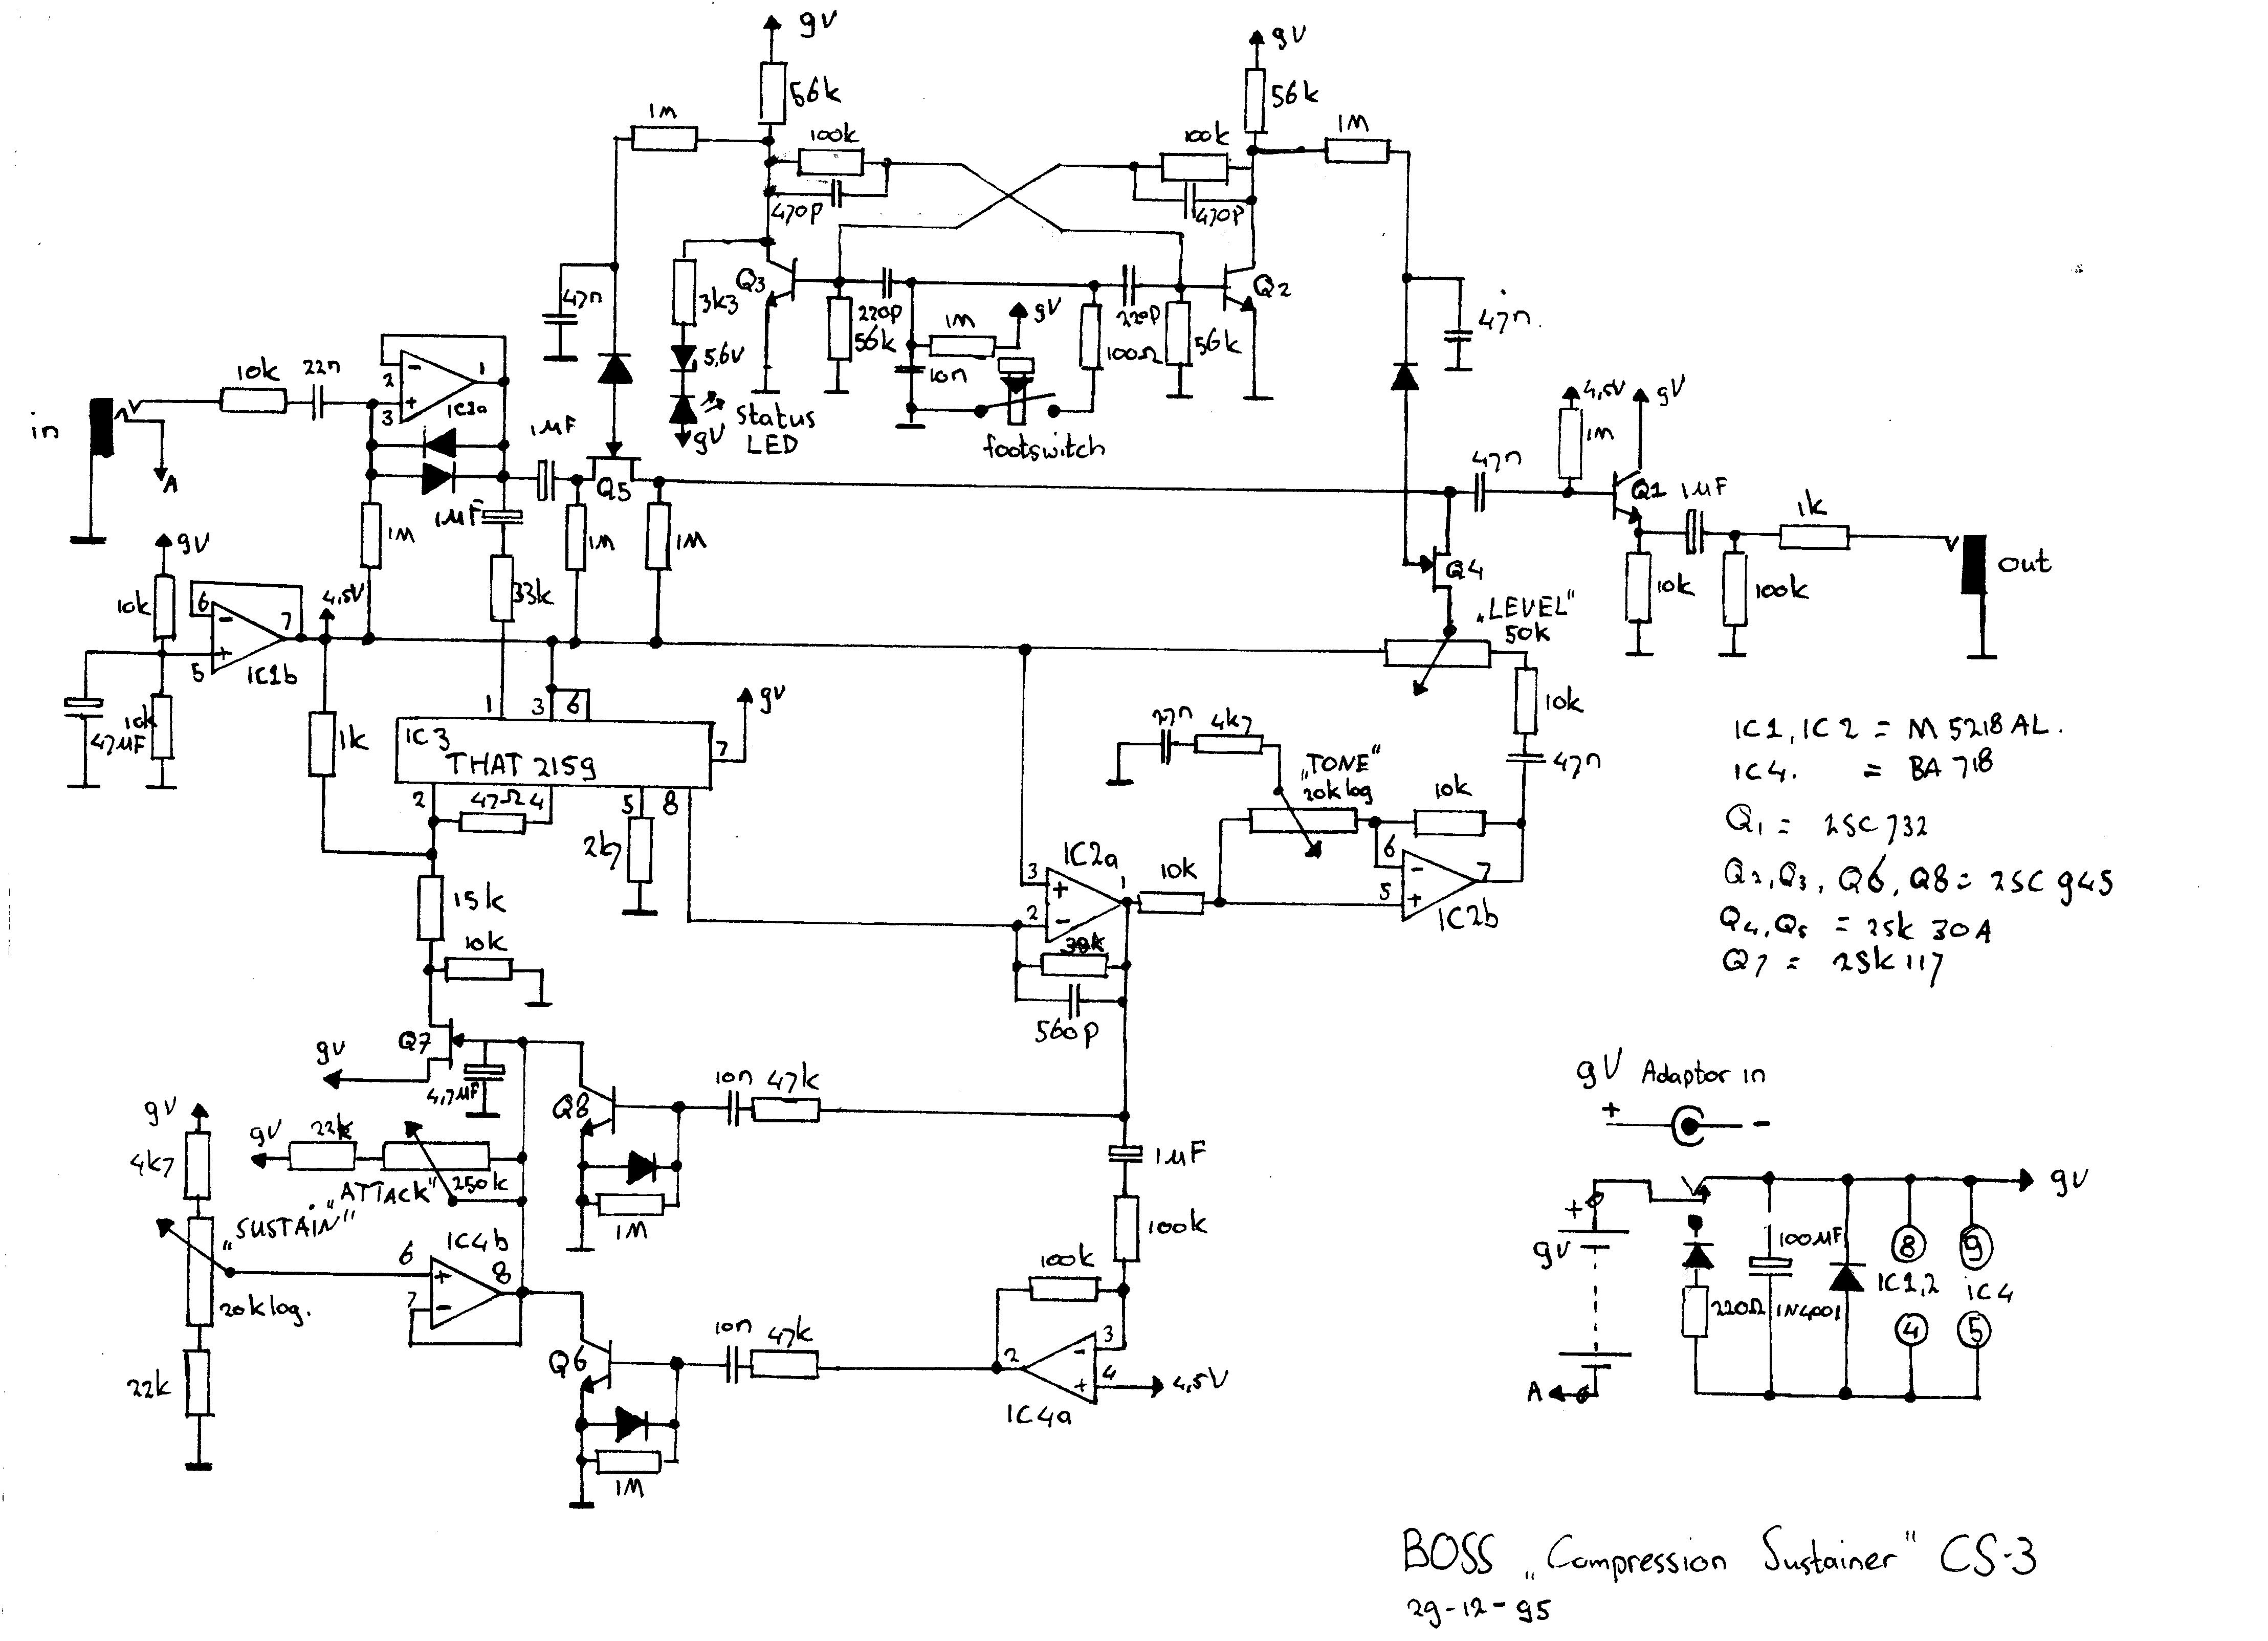 9V
9V
56k
56k
1M
100k
100k
1M
470p
470p
Q3
Q2
47n
3k3
220p
1M
9V
220p
56k
100Ω
56k
47n.
5,6V
10n
10k
22n
2
-
1
3
+
IC1a
in
A
1µF
9V
Status
LED
footswitch
Q5
4,5V
9V
1M
47n
Q1
1µF
1k
out
1µF
1M
1M
1M
Q4
10k
100k
9V
10k
6
-
7
4,5V
5
+
IC1b
33k
„LEVEL"
50k
10k
47µF
10k
1k
1
3
6
IC3
THAT 2159
7
9V
27n
4k7
„TONE"
20k log
10k
47n
2
47Ω
4
5
8
2k7
10k
IC1, IC2 = M5218AL.
IC4. = BA718
Q1 = 2SC732
Q2, Q3, Q6, Q8 = 2SC945
Q4, Q5 = 2SK30A
Q7 = 2SK117
IC2a
3
+
1
2
-
10k
6
-
7
5
+
IC2b
15k
10k
560p
Q7
9V
4,7µF
Q8
10n
47k
9V
4k7
9V
22k
„ATTACK"
250k
1M
1µF
100k
„SUSTAIN"
20k log.
IC4b
6
+
8
7
-
22k
100k
Q6
10n
47k
2
3
-
4
+
4,5V
IC4a
1M
9V Adaptor in
+
-
+
9V
9V
100µF
220Ω
1N4001
8
9
IC1,2
IC4
4
5
A
BOSS „Compression Sustainer" CS-3
29-12-95